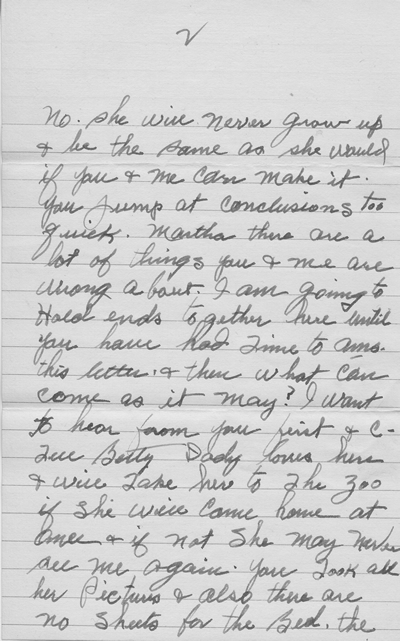 2
No. she will never grow up
& be the same as she would
if you & me can make it.
you jump at conclusions too
quick. Martha there are a
lot of things you & me are
wrong about, I am going to
Hold ends together here until
you have had Time to ans.
this letter. & then what can
come as it may? I want
to hear from you first & C-
Tell Betty Dady loves her
& will Take her to The Zoo
if She will Come home at
Once & if not She may Never
see me again. you Took all
her Pictures & also there are
no Sheets for the Bed. the